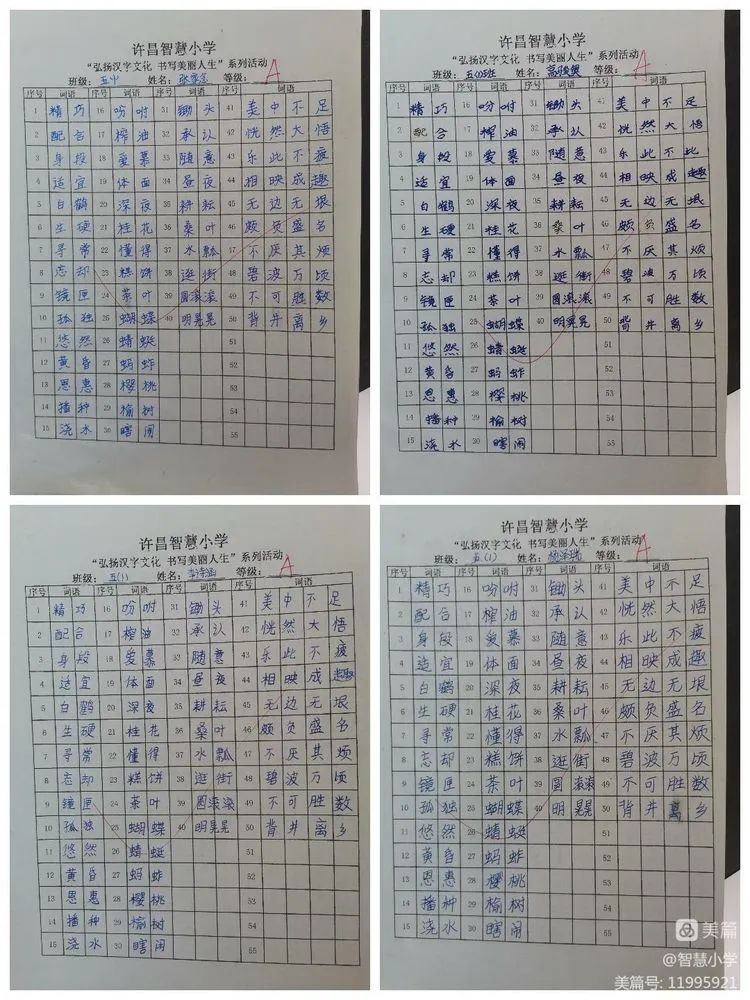 许昌智慧小学
“弘扬汉字文化 书写美丽人生”系列活动
班级： 姓名： 等级： A
序号 词语 序号 词语 序号 词语 序号 词语
1 精巧 16 吩咐 31 锄头 41 美中不足
2 配合 17 榨油 32 承认 42 恍然大悟
3 身段 18 爱慕 33 随意 43 乐此不疲
4 适宜 19 体面 34 昼夜 44 相映成趣
5 白鹤 20 深夜 35 耕耘 45 无边无垠
6 生硬 21 桂花 36 桑叶 46 颇负盛名
7 寻常 22 懂得 37 水瓢 47 不厌其烦
8 忘却 23 糕饼 38 逛街 48 碧波万顷
9 镜匣 24 茶叶 39 圆滚滚 49 不可胜数
10 孤独 25 蝴蝶 40 明晃晃 50 背井离乡
11 悠然 26 蜻蜓 51
12 黄昏 27 蚂蚱 52
13 恩惠 28 樱桃 53
14 播种 29 榆树 54
15 浇水 30 瞎闹 55
许昌智慧小学
“弘扬汉字文化 书写美丽人生”系列活动
班级： 五(1)班 姓名： 等级： A
序号 词语 序号 词语 序号 词语 序号 词语
1 精巧 16 吩咐 31 锄头 41 美中不足
2 配合 17 榨油 32 承认 42 恍然大悟
3 身段 18 爱慕 33 随意 43 乐此不此
4 适宜 19 体面 34 昼夜 44 相映成趣
5 白鹤 20 深夜 35 耕耘 45 无边无垠
6 生硬 21 桂花 36 桑叶 46 颇负盛名
7 寻常 22 懂得 37 水瓢 47 不厌其烦
8 忘却 23 糕饼 38 逛街 48 碧波万顷
9 镜匣 24 茶叶 39 圆滚滚 49 不可胜数
10 孤独 25 蝴蝶 40 明晃晃 50 背井离乡
11 悠然 26 蜻蜓 51
12 黄昏 27 蚂蚱 52
13 恩惠 28 樱桃 53
14 播种 29 榆树 54
15 浇水 30 瞎闹 55
许昌智慧小学
“弘扬汉字文化 书写美丽人生”系列活动
班级： 五(1) 姓名： 等级： A
序号 词语 序号 词语 序号 词语 序号 词语
1 精巧 16 吩咐 31 锄头 41 美中不足
2 配合 17 榨油 32 承认 42 恍然大悟
3 身段 18 爱慕 33 随意 43 乐此不疲
4 适宜 19 体面 34 昼夜 44 相映成趣
5 白鹤 20 深夜 35 耕耘 45 无边无垠
6 生硬 21 桂花 36 桑叶 46 颇负盛名
7 寻常 22 懂得 37 水瓢 47 不厌其烦
8 忘却 23 糕饼 38 逛街 48 碧波万顷
9 镜匣 24 茶叶 39 圆滚滚 49 不可胜数
10 孤独 25 蝴蝶 40 明晃晃 50 背井离乡
11 悠然 26 蜻蜓 51
12 黄昏 27 蚂蚱 52
13 恩惠 28 樱桃 53
14 播种 29 榆树 54
15 浇水 30 瞎闹 55
许昌智慧小学
“弘扬汉字文化 书写美丽人生”系列活动
班级： 五(1) 姓名： 等级： A
序号 词语 序号 词语 序号 词语 序号 词语
1 精巧 16 吩咐 31 锄头 41 美中不足
2 配合 17 榨油 32 承认 42 恍然大悟
3 身段 18 爱慕 33 随意 43 乐此不疲
4 适宜 19 体面 34 昼夜 44 相映成趣
5 白鹤 20 深夜 35 耕耘 45 无边无垠
6 生硬 21 桂花 36 桑叶 46 颇负盛名
7 寻常 22 懂得 37 水瓢 47 不厌其烦
8 忘却 23 糕饼 38 逛街 48 碧波万顷
9 镜匣 24 茶叶 39 圆滚滚 49 不可胜数
10 孤独 25 蝴蝶 40 明晃晃 50 背井离乡
11 悠然 26 蜻蜓 51
12 黄昏 27 蚂蚱 52
13 恩惠 28 樱桃 53
14 播种 29 榆树
15 浇水 30 瞎闹
美篇
@智慧小学
美篇号: 11995921